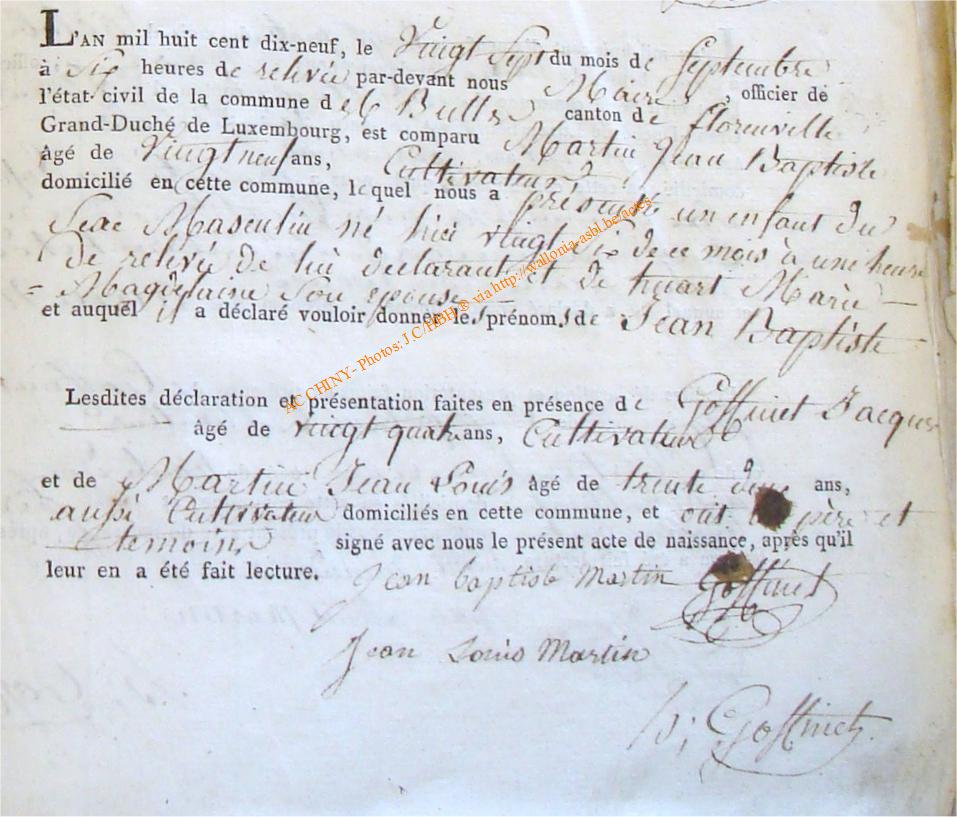 L'AN mil huit cent dix-neuf, le Vingt Sept du mois de Septembre
à Six heures de relevée par-devant nous Maire, officier de
l'état-civil de la commune d canton de florenville
Grand-Duché de Luxembourg, est comparu Martin Jean Baptiste
âgé de Vingt neuf ans, Cultivateur
domicilié en cette commune, lequel nous a présenté un enfant du
Sexe Masculin né hier vingt Six de ce mois à une heure
de relevée de lui déclarant et de Marie
Magdelaine Son epouse
et auquel il a déclaré vouloir donner les prénoms de Jean Baptiste
Lesdites déclaration et présentation faites en présence de Goffinet Jacques
âgé de vingt quatre ans, Cultivateur
et de Martin Jean Louis âgé de trente deux ans,
aussi Cultivateur domiciliés en cette commune, et ont père et
temoins signé avec nous le présent acte de naissance, après qu'il
leur en a été fait lecture. Jean baptiste Martin Goffinet
Jean Louis Martin
Goffinet
AC CHINY - Photos: J.C/HBH ® via http://wallonia-asbl.be/actes